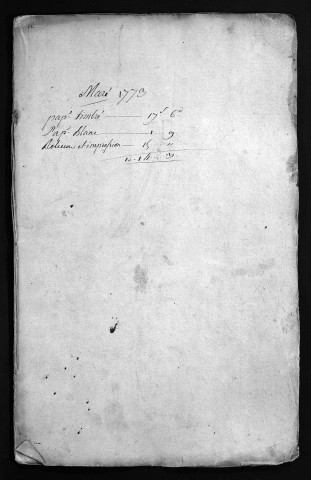 Mars 1773
pap.r timbré — 17s 6d
Pap.r Blanc — 1 9
Relieur et impression — 15 "
14 3